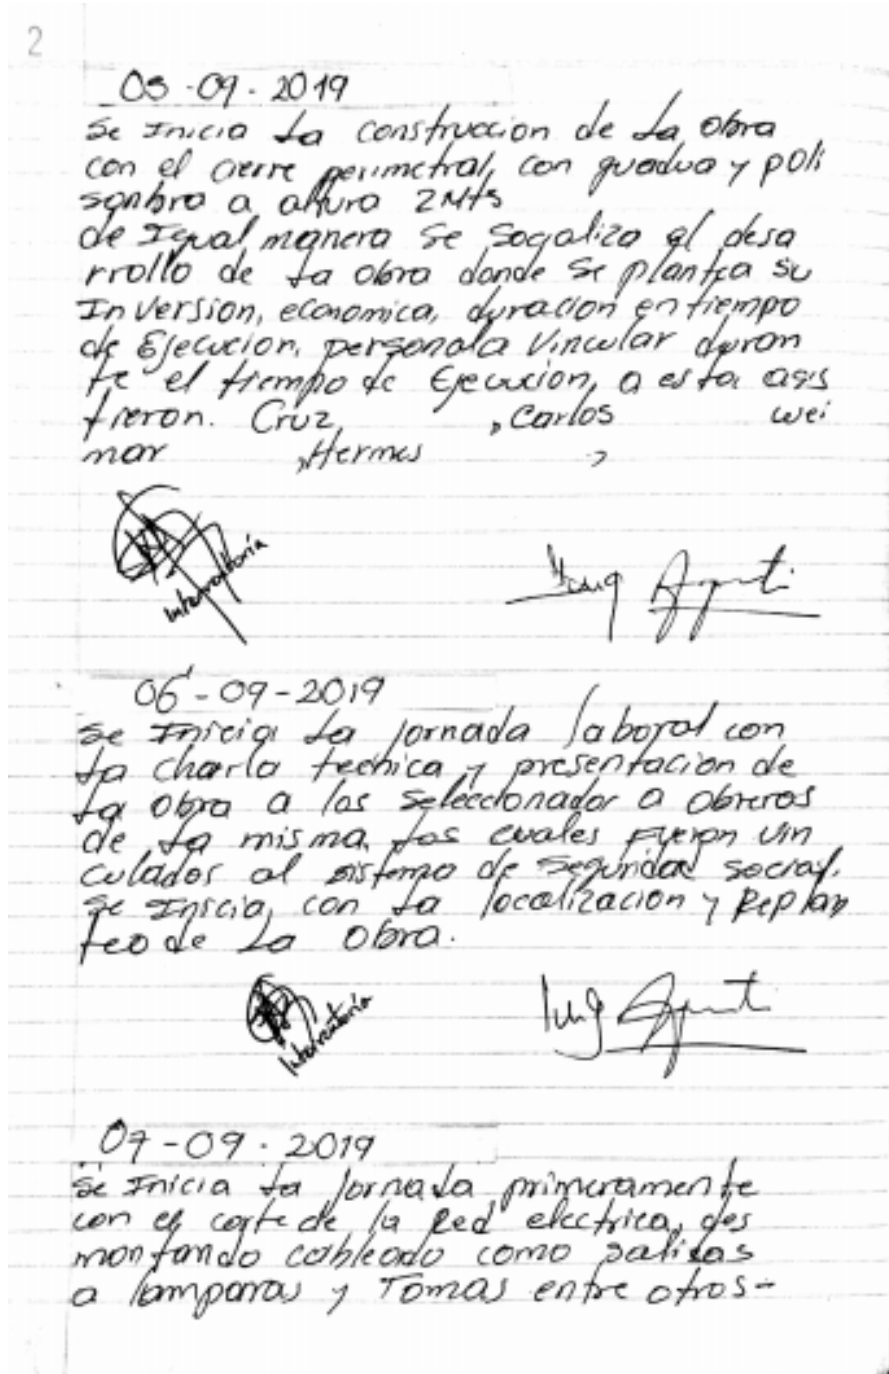 2
05-09-2019
Se Inicia La construccion de La obra
con el cierre perimetral, con guadua y poli
sombra a altura 2Mts
de Igual manera se Socializo el desa
rrollo de La obra donde se plantea su
Inversion, economica, duracion en tiempo
de Ejecucion, personal a Vincular duran
te el tiempo de Ejecucion, a esta asis
tieron. Cruz , Carlos wei
mar , Hermes ,
Interventoria
06-09-2019
Se Inicia La jornada laboral con
La charla technica y presentacion de
La Obra a los Seleccionador a Obreros
de La misma, Los cuales fueron vin
culados al sistema de Seguridad Social.
Se Inicia, con La localizacion y Replan
teo de La Obra.
Interventoria
07-09-2019
Se Inicia La Jornada primeramente
con el corte de la Red electrica, des
montando cableado como salidas
a lamparas y Tomas entre otros-